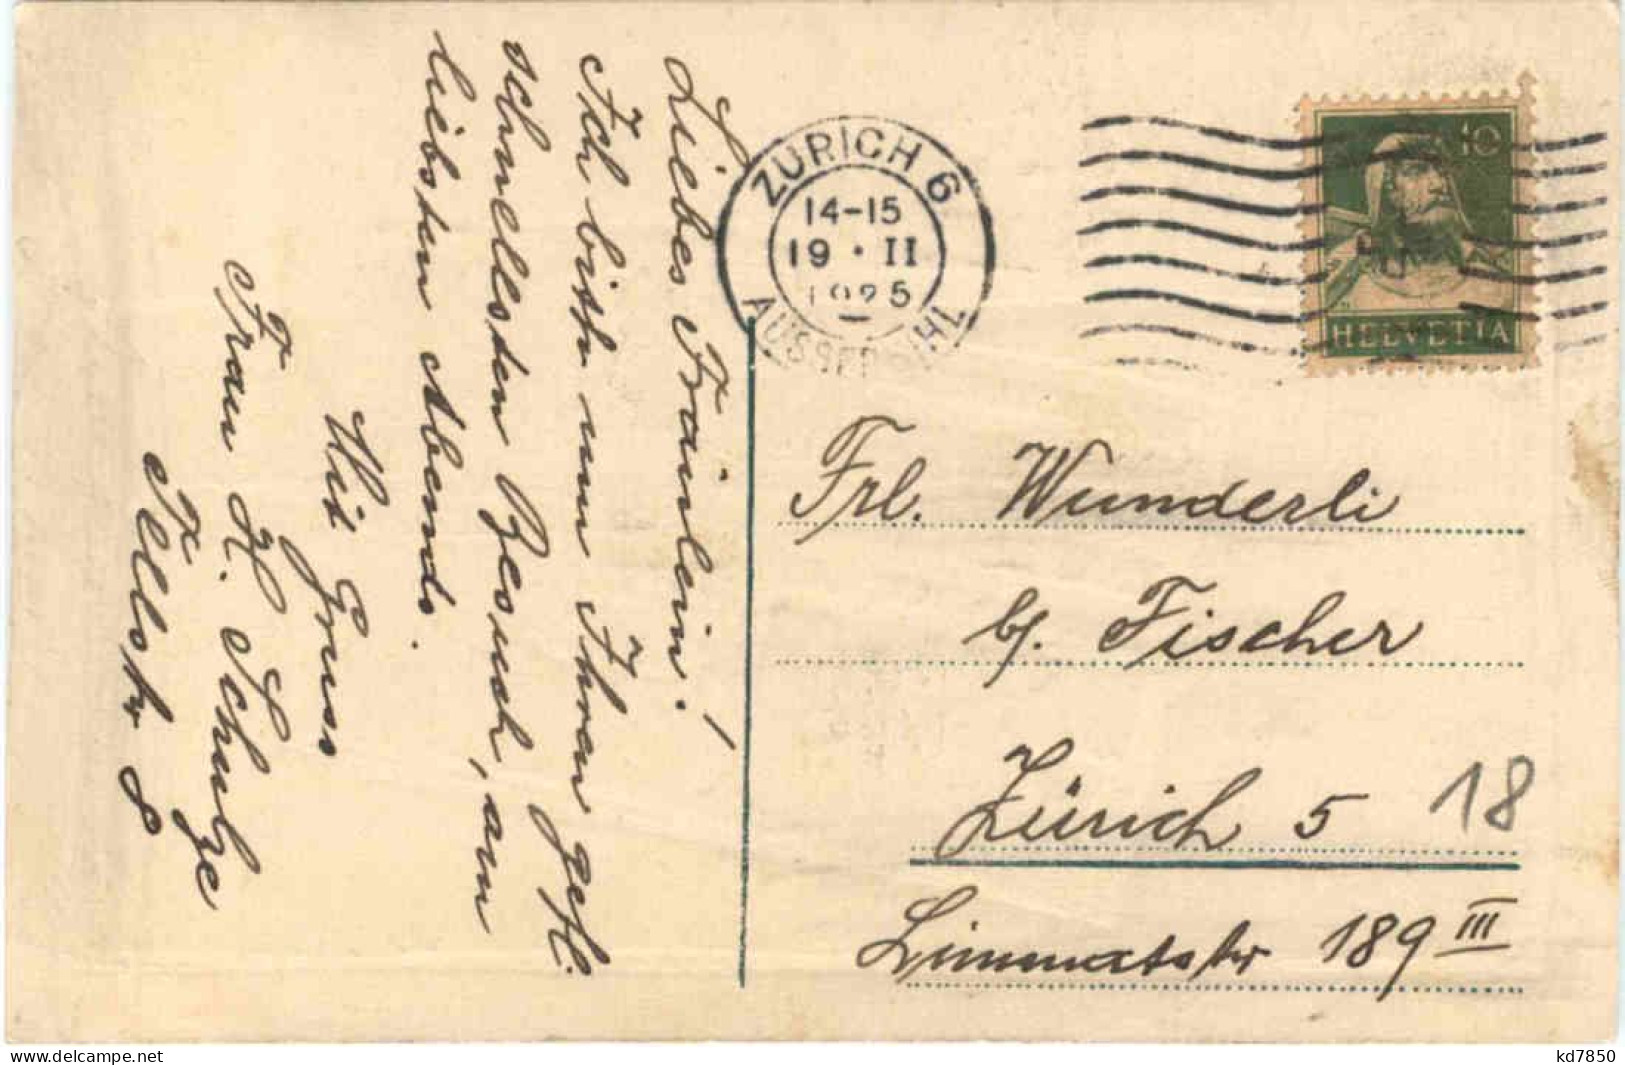 Liebes Fräulein!
Ich bitte um Ihren gefl.
schnellsten Besuch, am
liebsten Abends.
Mit Gruss
Frau H. Schulze
Tellstr 8
ZÜRICH 6
14-15
19 • II
1925
AUSSERSIHL
10
HELVETIA
Frl. Wunderli
bj. Fischer
Zürich 5
18
Limmatstr 189 III
www.delcampe.net
kd7850